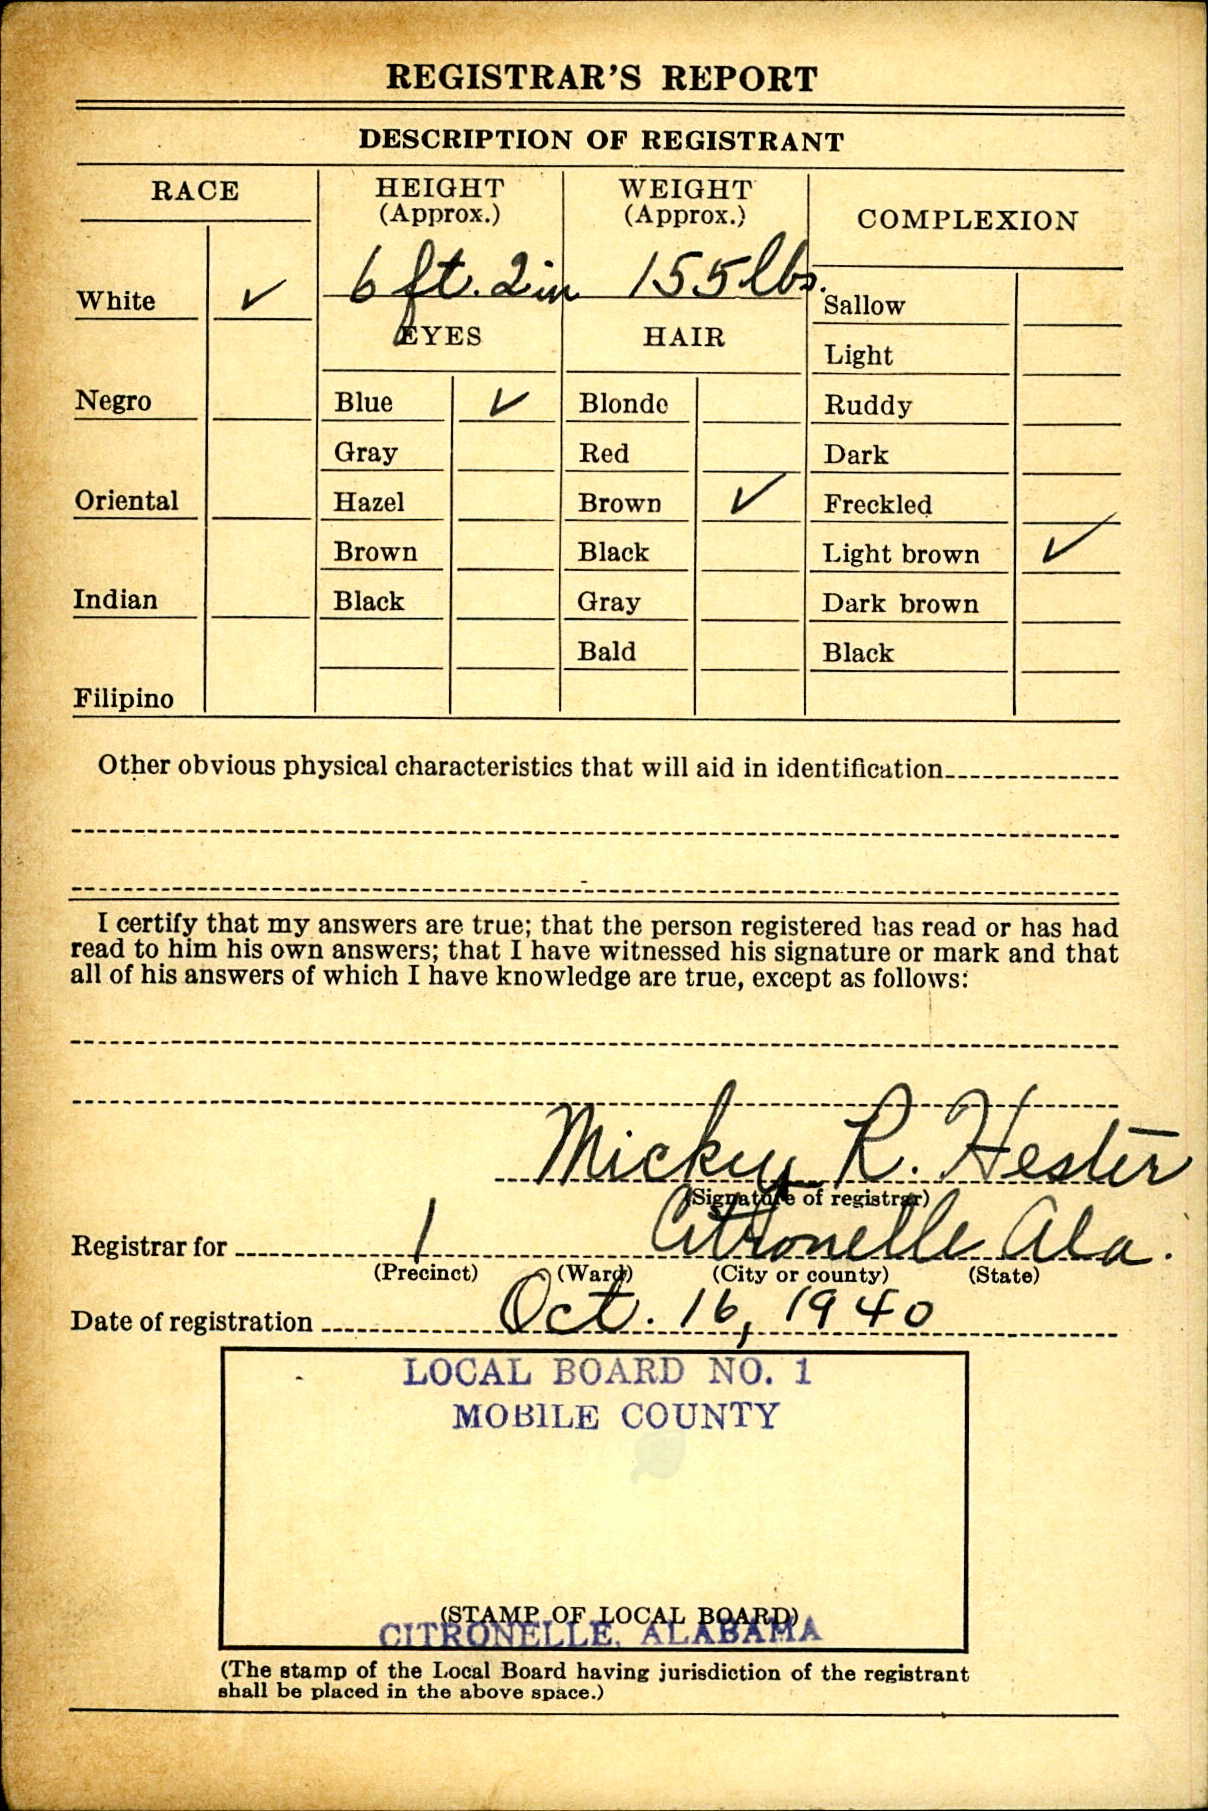 REGISTRAR'S REPORT
DESCRIPTION OF REGISTRANT
RACE
HEIGHT
(Approx.)
WEIGHT
(Approx.)
COMPLEXION
White ✓
6 ft. 2 in
155 lbs.
Sallow
EYES
HAIR
Light
Negro
Blue ✓
Blonde
Ruddy
Gray
Red
Dark
Oriental
Hazel
Brown ✓
Freckled
Brown
Black
Light brown ✓
Indian
Black
Gray
Dark brown
Bald
Black
Filipino
Other obvious physical characteristics that will aid in identification
I certify that my answers are true; that the person registered has read or has had
read to him his own answers; that I have witnessed his signature or mark and that
all of his answers of which I have knowledge are true, except as follows:
Mickey R. Hester
(Signature of registrar)
Registrar for 1 Citronelle Ala.
(Precinct) (Ward) (City or county) (State)
Date of registration Oct. 16, 1940
LOCAL BOARD NO. 1
MOBILE COUNTY
(STAMP OF LOCAL BOARD)
CITRONELLE, ALABAMA
(The stamp of the Local Board having jurisdiction of the registrant
shall be placed in the above space.)